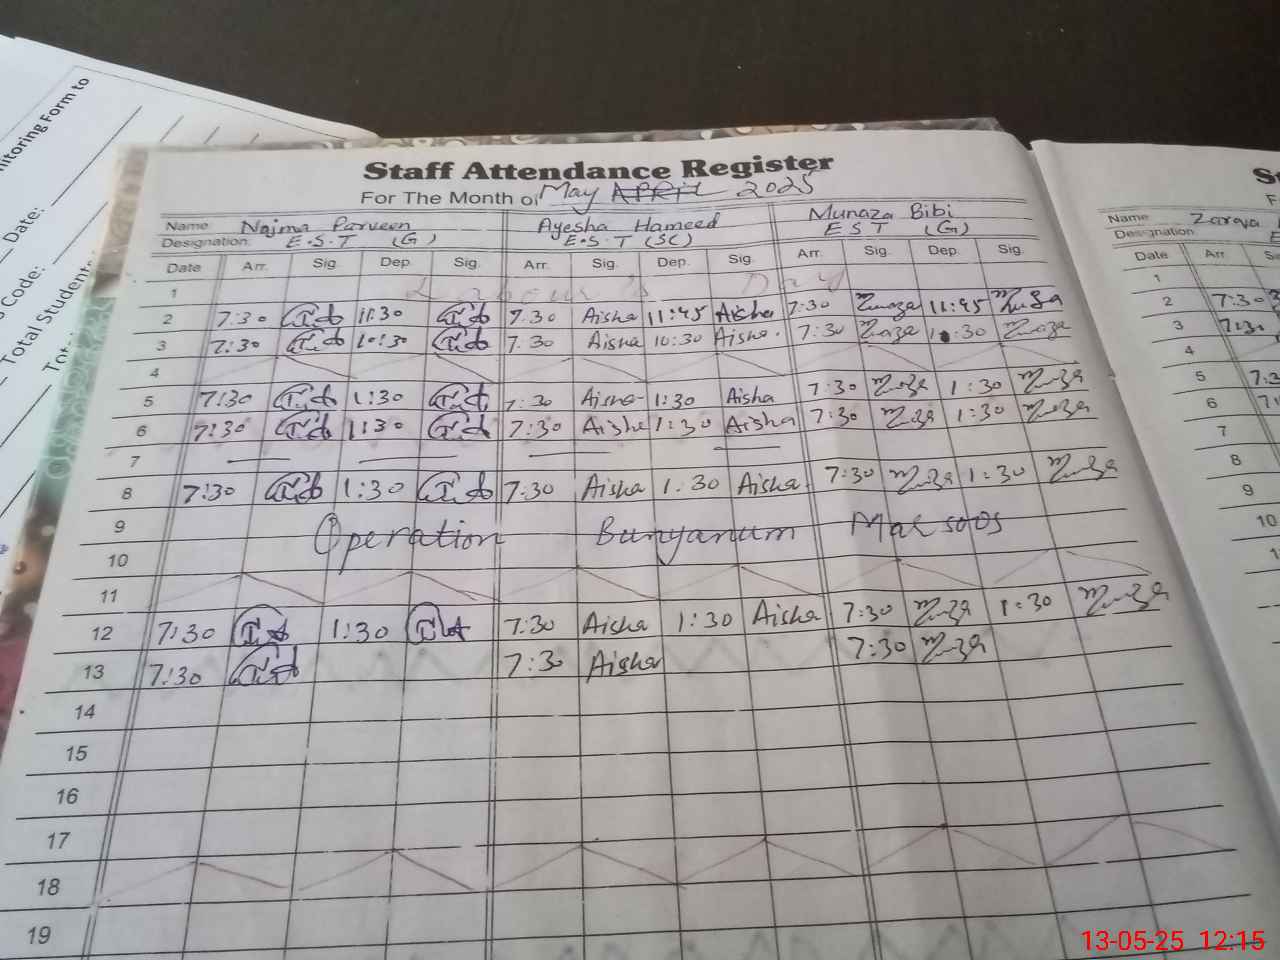 nitoring Form to
Date:
Code:
Total Students:
Staff Attendance Register
For The Month of May APRIL 2025
Name Najma Parveen Ayesha Hameed Munaza Bibi
Designation: E.S.T (G) E.S.T (SC) EST (G)
Date Arr. Sig. Dep. Sig. Arr. Sig. Dep. Sig. Arr. Sig. Dep. Sig.
1 Labour's Day
2 7:30 11:30 7:30 Aisha 11:45 Aisha 7:30 11:45
3 7:30 10:30 7:30 Aisha 10:30 Aisha. 7:30 :30
4
5 7:30 1:30 7:30 Aisha 1:30 Aisha 7:30 1:30
6 7:30 1:30 7:30 Aisha 1:30 Aisha 7:30 1:30
7
8 7:30 1:30 7:30 Aisha 1:30 Aisha 7:30 1:30
9 Operation Bunyanum Marsoos
10
11
12 7:30 1:30 7:30 Aisha 1:30 Aisha 7:30 1:30
13 7:30 7:30 Aisha 7:30
14
15
16
17
18
19
Name Zarqa
Designation
Date Arr.
1
2 7:30
3 7:30
4
5
6
7
8
9
10
13-05-25 12:15